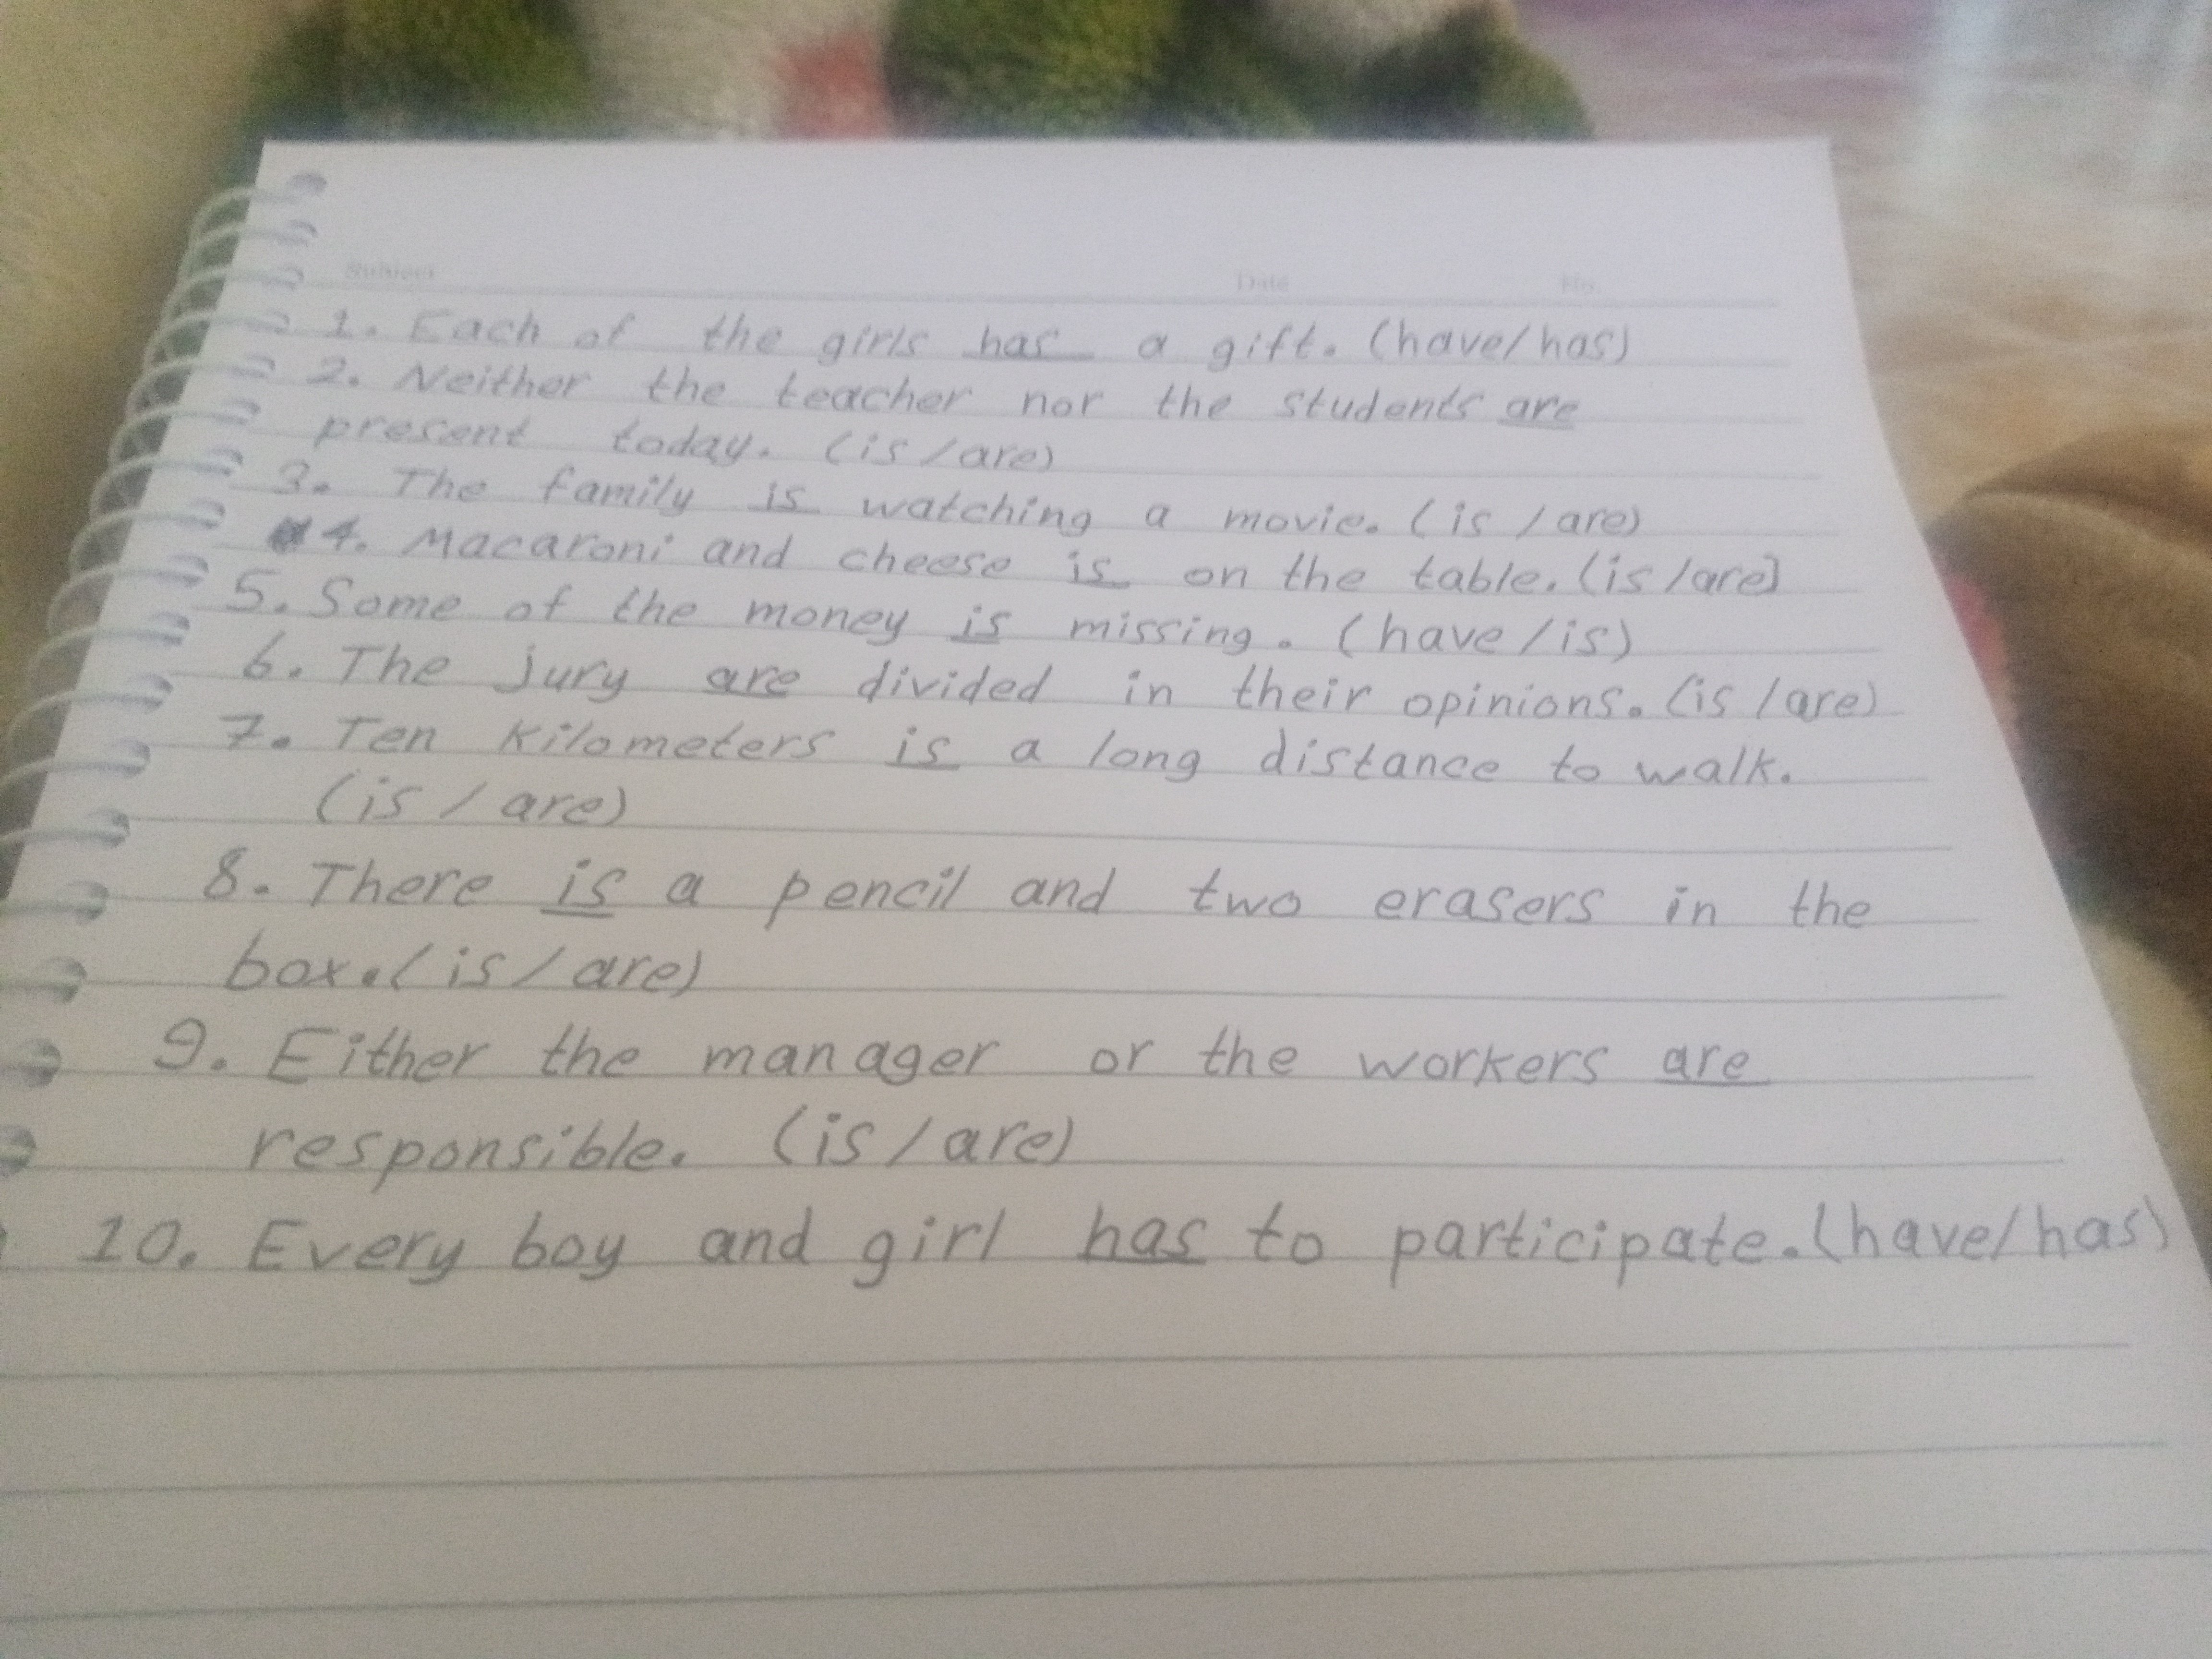 Subject Date No.
1. Each of the girls has a gift. (have/has)
2. Neither the teacher nor the students are
present today. (is/are)
3. The family is watching a movie. (is/are)
4. Macaroni and cheese is on the table. (is/are]
5. Some of the money is missing. (have/is)
6. The jury are divided in their opinions. (is/are)
7. Ten kilometers is a long distance to walk.
(is/are)
8. There is a pencil and two erasers in the
box. (is/are)
9. Either the manager or the workers are
responsible. (is/are)
10. Every boy and girl has to participate. (have/has)